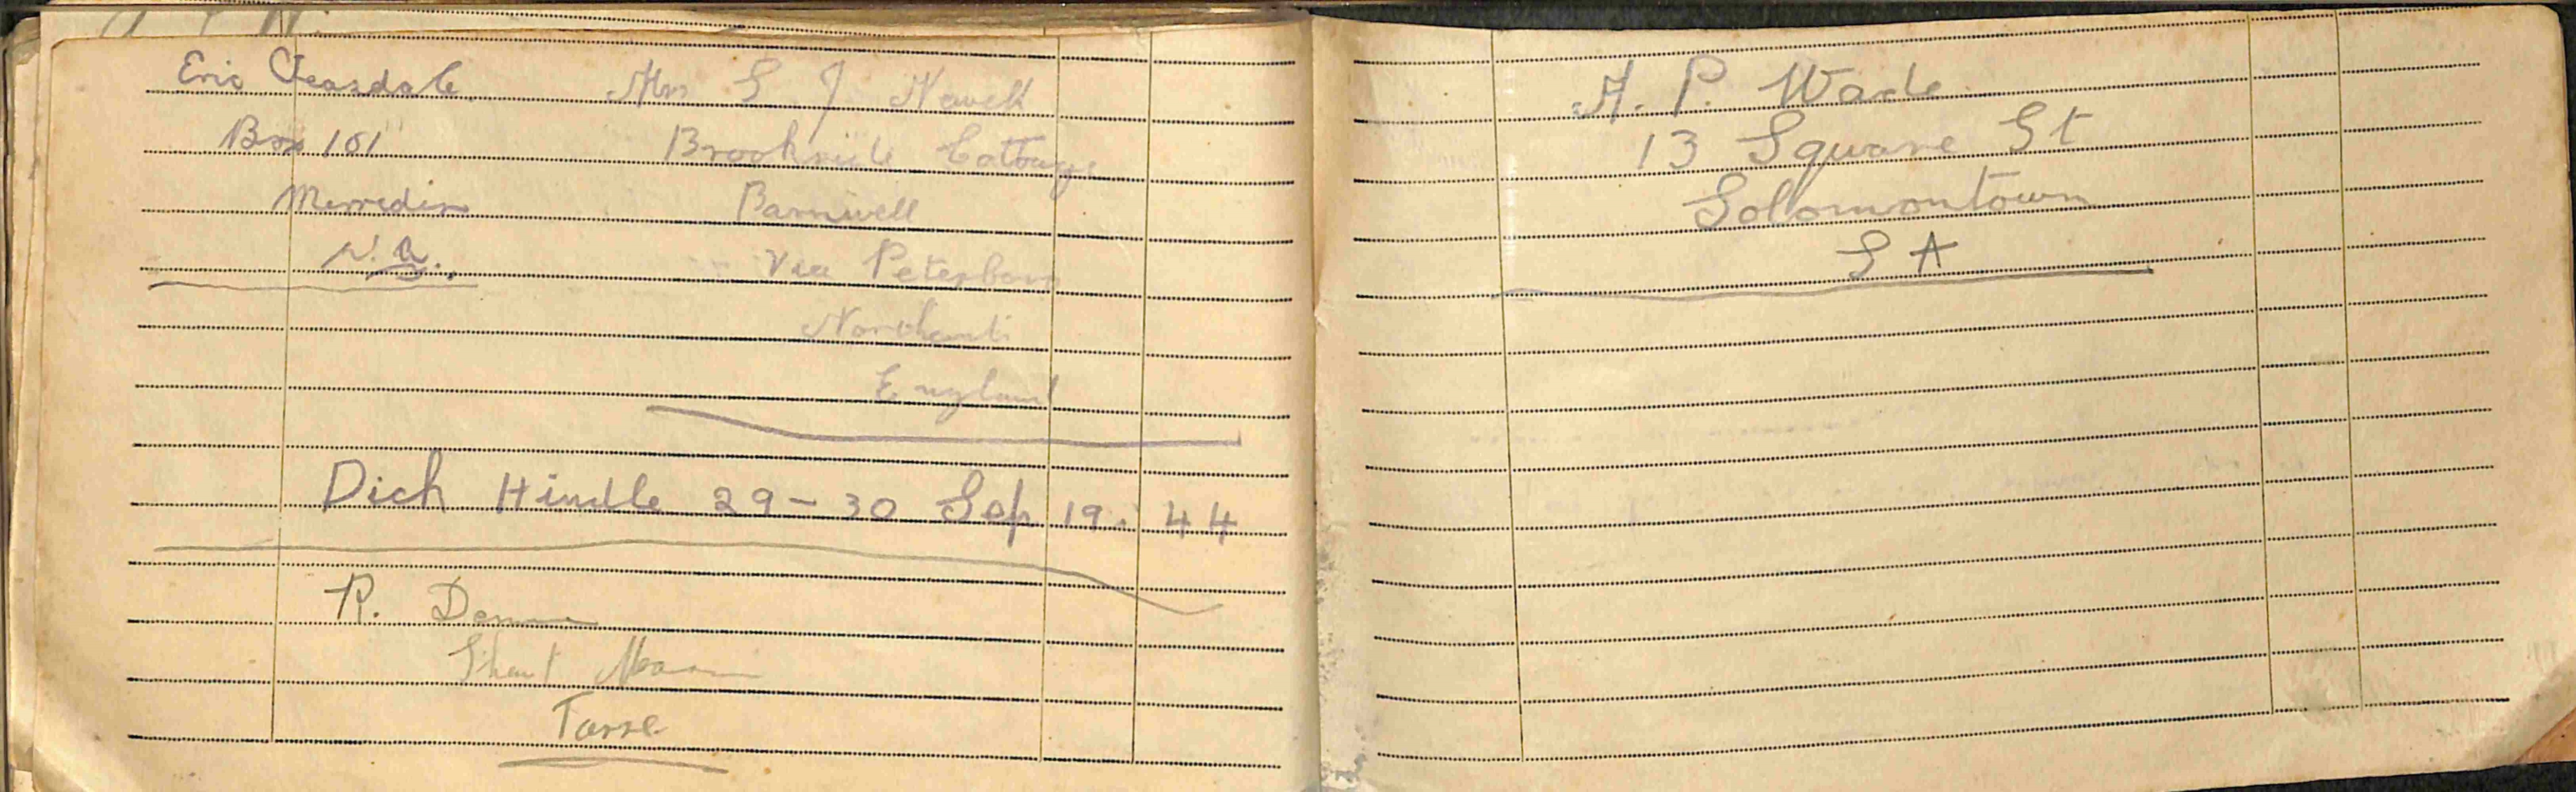 Eric Teasdale
Box 101
Merredin
W.A.
Mrs S J
Brookside Cottage
Barnwell
Via Peterboro
Northants
England
Dick Hindle 29-30 Sep 19. 44
R.
Short
A. P. Wade
13 Square St
Solomontown
S A